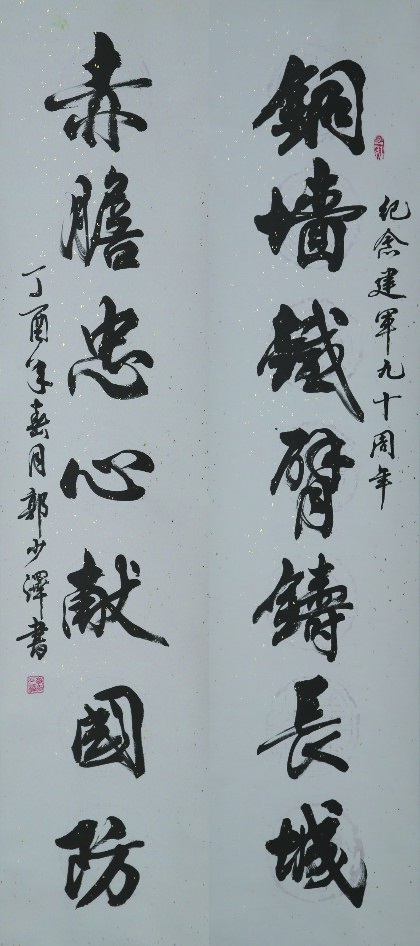 纪念建军九十周年
銅墻鐵臂鑄長城
赤膽忠心獻國防
丁酉年春月郭少澤書